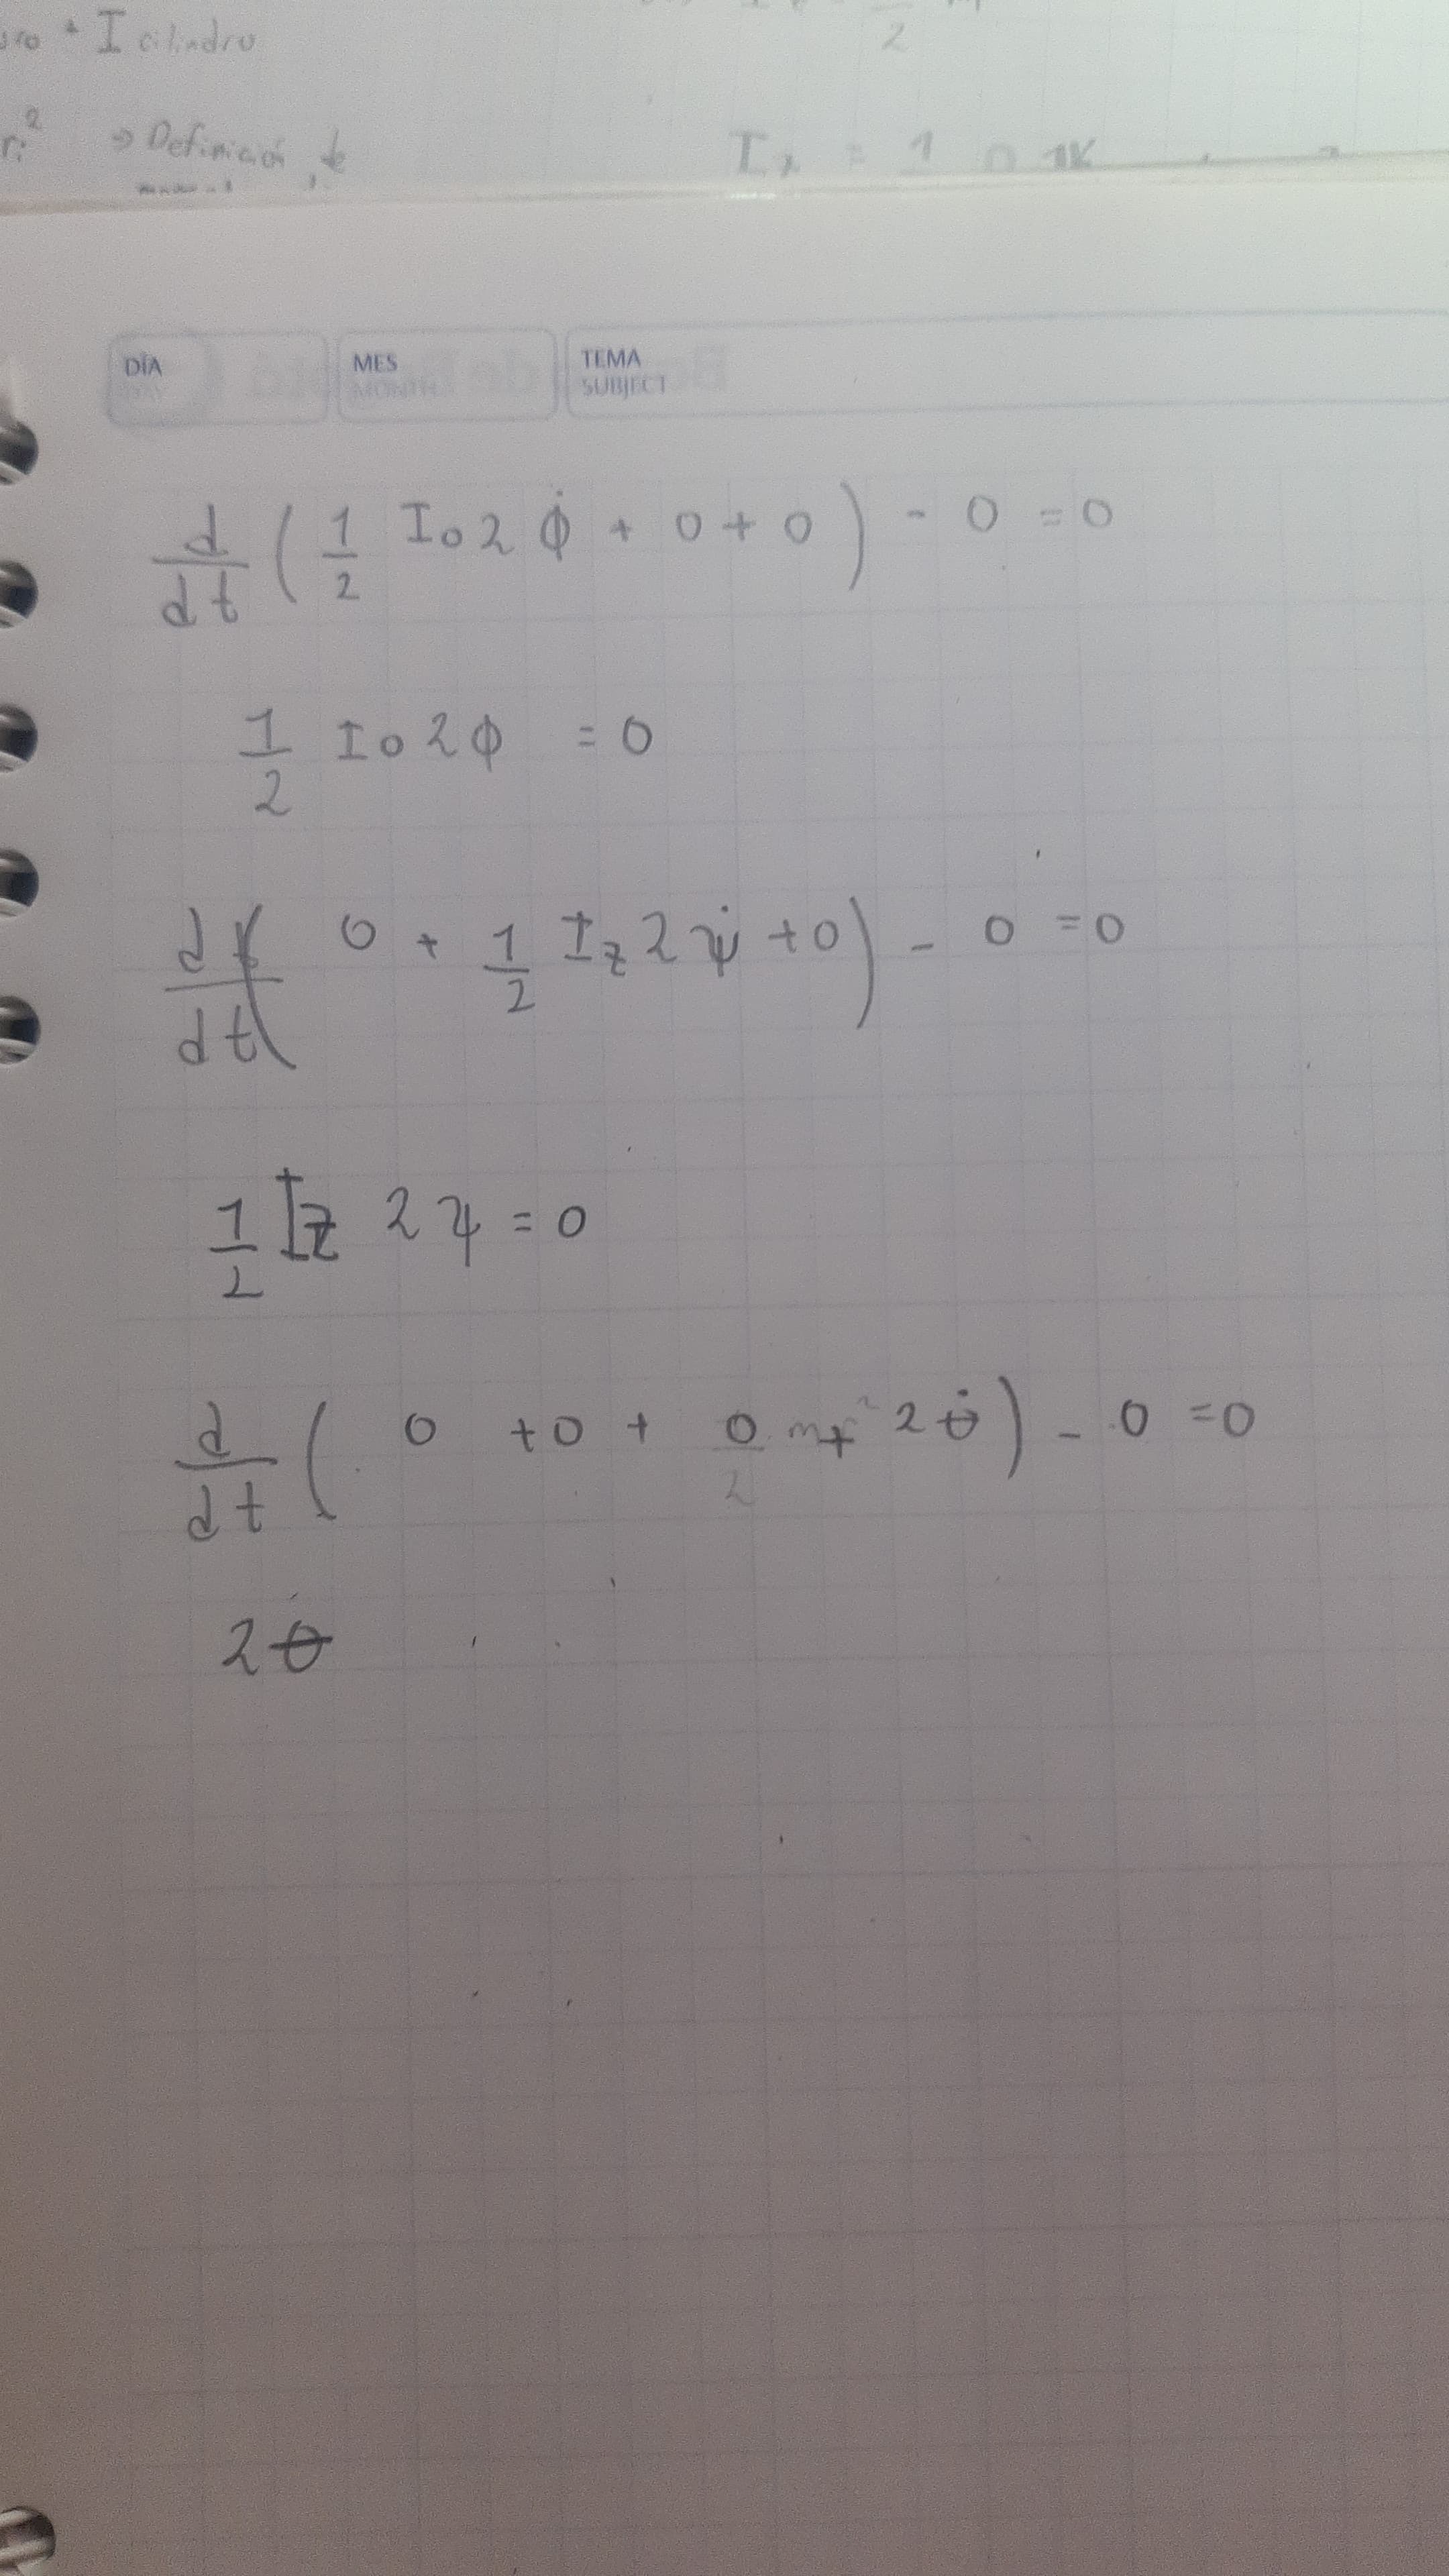 + I cilindro
⇒ Definición de
DÍA
DAY
MES
MONTH
TEMA
SUBJECT
d/dt ( 1/2 Io 2 φ̇ + 0 + 0 ) - 0 = 0
1/2 Io 2 φ = 0
d/dt ( 0 + 1/2 Iz 2 ψ̇ + 0 ) - 0 = 0
1/2 Iz 2 ψ = 0
d/dt ( 0 + 0 + 0 + 2 θ̇ ) - 0 = 0
2 θ